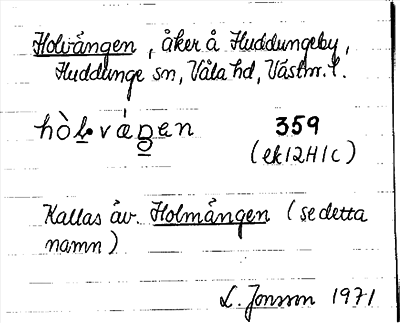 Holvången, åker å Huddungeby,
Huddunge sn, Våla hd, Västm. l.
359
(ek 12H1c)
Kallas äv. Holmången (se detta
namn)
L. Jonsson 1971